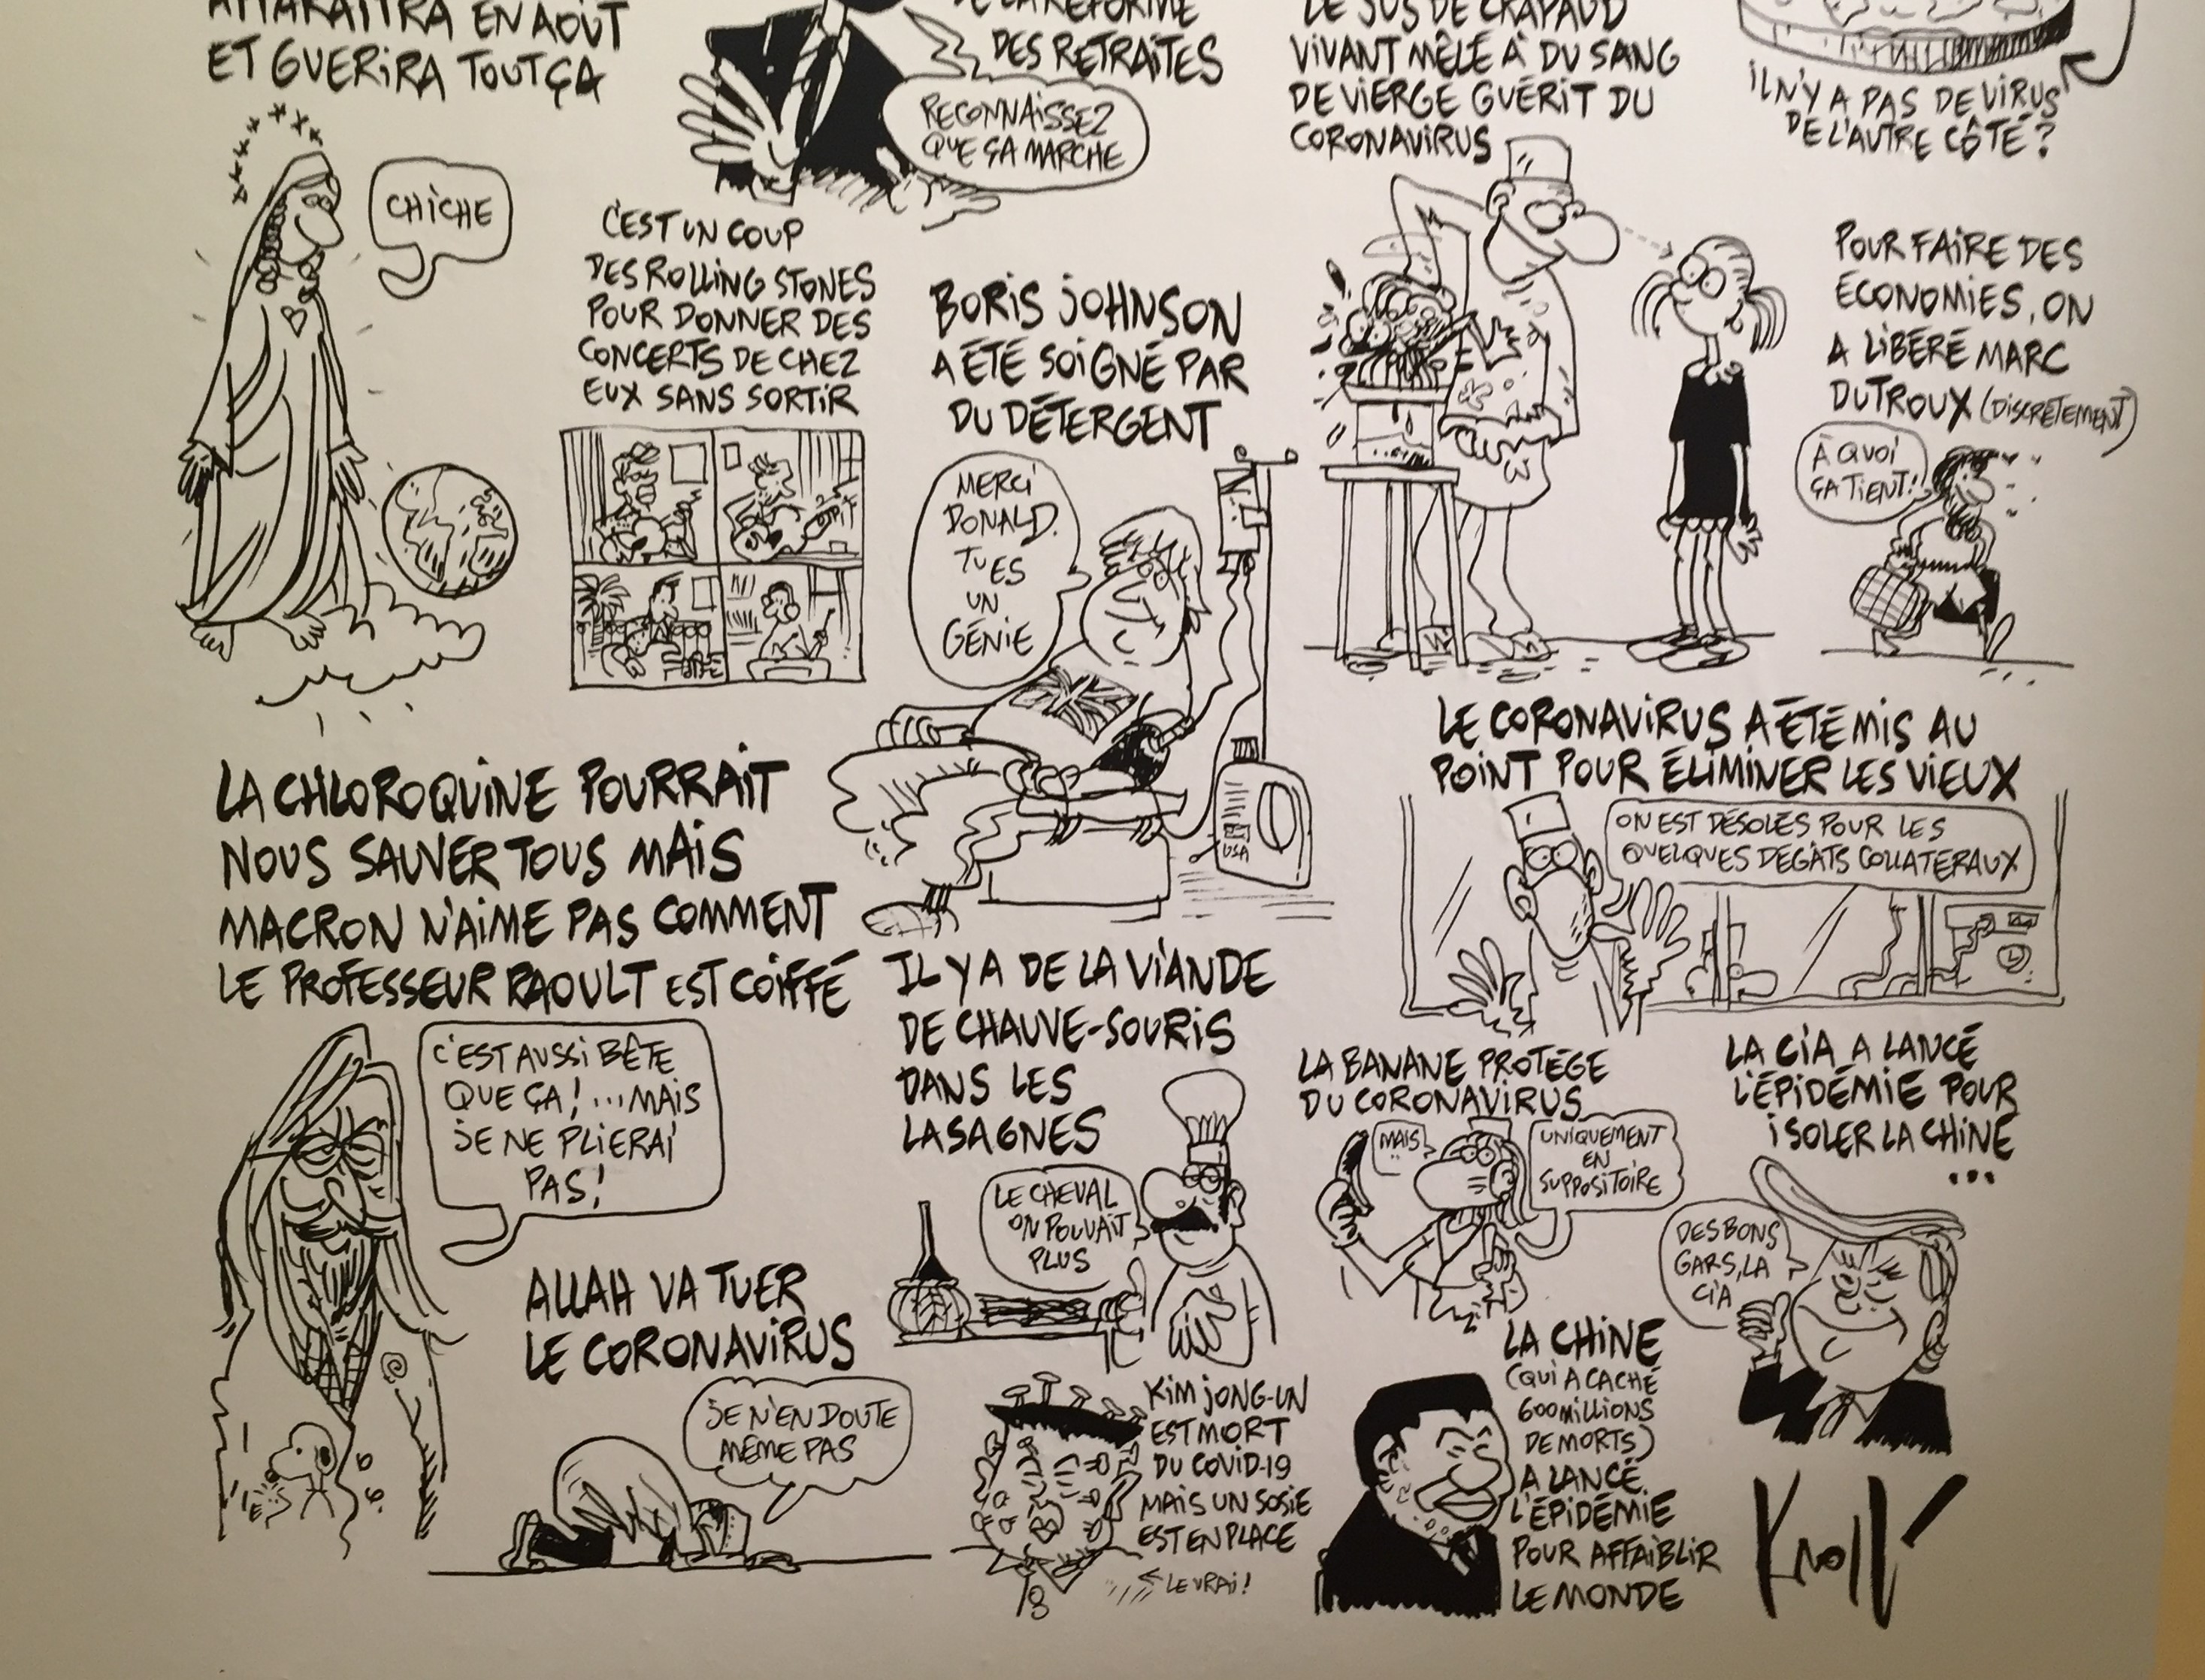 APPARAÎTRA EN AOÛT
ET GUÉRIRA TOUT ÇA
CHICHE
DE LA RÉFORME
DES RETRAITES
RECONNAISSEZ
QUE ÇA MARCHE
LE JUS DE CRAPAUD
VIVANT MÊLÉ À DU SANG
DE VIERGE GUÉRIT DU
CORONAVIRUS
IL N'Y A PAS DE VIRUS
DE L'AUTRE CÔTÉ?
C'EST UN COUP
DES ROLLING STONES
POUR DONNER DES
CONCERTS DE CHEZ
EUX SANS SORTIR
BORIS JOHNSON
A ÉTÉ SOIGNÉ PAR
DU DÉTERGENT
MERCI
DONALD.
TU ES
UN
GÉNIE
USA
POUR FAIRE DES
ÉCONOMIES, ON
A LIBÉRÉ MARC
DUTROUX (DISCRÈTEMENT)
À QUOI
ÇA TIENT!
LE CORONAVIRUS A ÉTÉ MIS AU
POINT POUR ÉLIMINER LES VIEUX
ON EST DÉSOLÉS POUR LES
QUELQUES DÉGÂTS COLLATÉRAUX
LA CHLOROQUINE POURRAIT
NOUS SAUVER TOUS MAIS
MACRON N'AIME PAS COMMENT
LE PROFESSEUR RAOULT EST COIFFÉ
C'EST AUSSI BÊTE
QUE ÇA! ...MAIS
JE NE PLIERAI
PAS!
IL Y A DE LA VIANDE
DE CHAUVE-SOURIS
DANS LES
LASAGNES
LE CHEVAL
ON POUVAIT
PLUS
LA BANANE PROTÈGE
DU CORONAVIRUS
MAIS..
UNIQUEMENT
EN
SUPPOSITOIRE
LA CIA A LANCÉ
L'ÉPIDÉMIE POUR
ISOLER LA CHINE
...
DES BONS
GARS, LA
CIA
ALLAH VA TUER
LE CORONAVIRUS
JE N'EN DOUTE
MÊME PAS
KIM JONG-UN
EST MORT
DU COVID-19
MAIS UN SOSIE
EST EN PLACE
LE VRAI!
LA CHINE
(QUI A CACHÉ
600 MILLIONS
DE MORTS)
A LANCÉ
L'ÉPIDÉMIE
POUR AFFAIBLIR
LE MONDE
Kroll